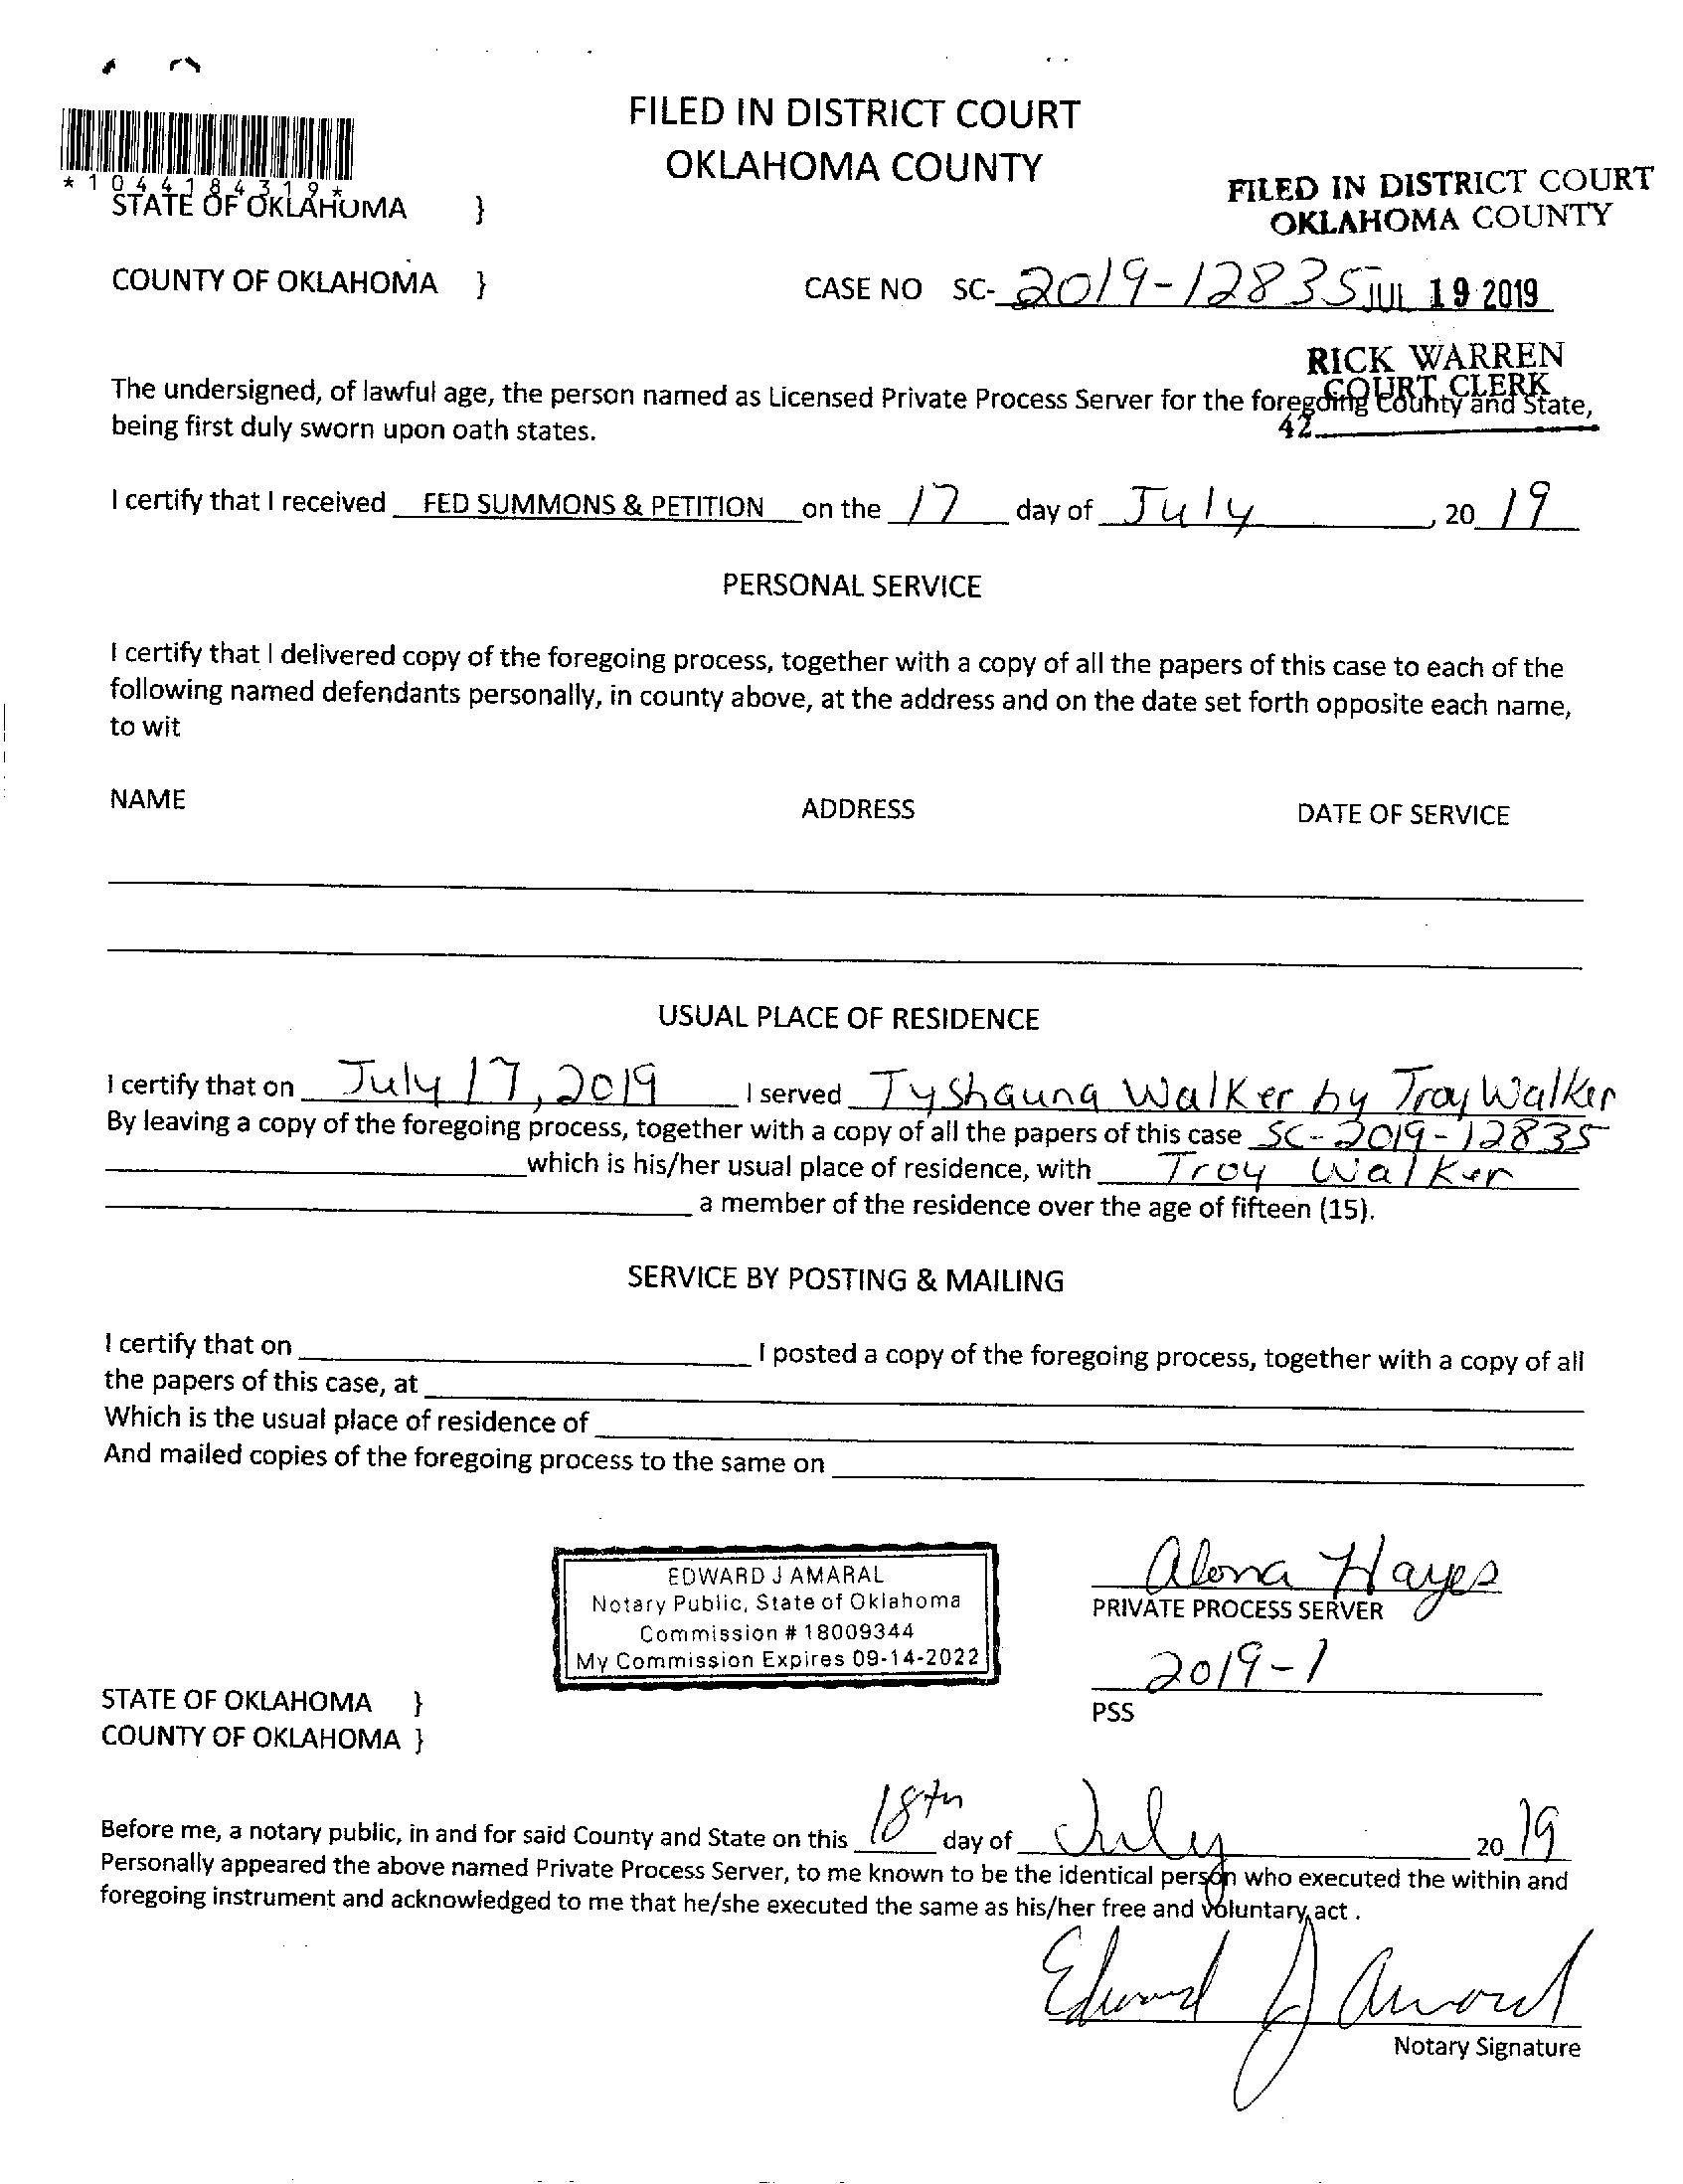 FILED IN DISTRICT COURT
OKLAHOMA COUNTY
*1044184319*
FILED IN DISTRICT COURT
OKLAHOMA COUNTY
STATE OF OKLAHOMA }
COUNTY OF OKLAHOMA } CASE NO SC- 2019-12835 JUL 19 2019
RICK WARREN
COURT CLERK
42
The undersigned, of lawful age, the person named as Licensed Private Process Server for the foregoing County and State,
being first duly sworn upon oath states.
I certify that I received FED SUMMONS & PETITION on the 17 day of July, 20 19
PERSONAL SERVICE
I certify that I delivered copy of the foregoing process, together with a copy of all the papers of this case to each of the
following named defendants personally, in county above, at the address and on the date set forth opposite each name,
to wit
NAME ADDRESS DATE OF SERVICE
USUAL PLACE OF RESIDENCE
I certify that on July 17, 2019 I served Tyshauna Walker by Troy Walker
By leaving a copy of the foregoing process, together with a copy of all the papers of this case SC-2019-12835
which is his/her usual place of residence, with Troy Walker
a member of the residence over the age of fifteen (15).
SERVICE BY POSTING & MAILING
I certify that on I posted a copy of the foregoing process, together with a copy of all
the papers of this case, at
Which is the usual place of residence of
And mailed copies of the foregoing process to the same on
EDWARD J AMARAL
Notary Public, State of Oklahoma
Commission # 18009344
My Commission Expires 09-14-2022
Alona Hayes
PRIVATE PROCESS SERVER
2019-1
PSS
STATE OF OKLAHOMA }
COUNTY OF OKLAHOMA }
Before me, a notary public, in and for said County and State on this 18th day of July 20 19
Personally appeared the above named Private Process Server, to me known to be the identical person who executed the within and
foregoing instrument and acknowledged to me that he/she executed the same as his/her free and voluntary act .
Edward J Amaral
Notary Signature